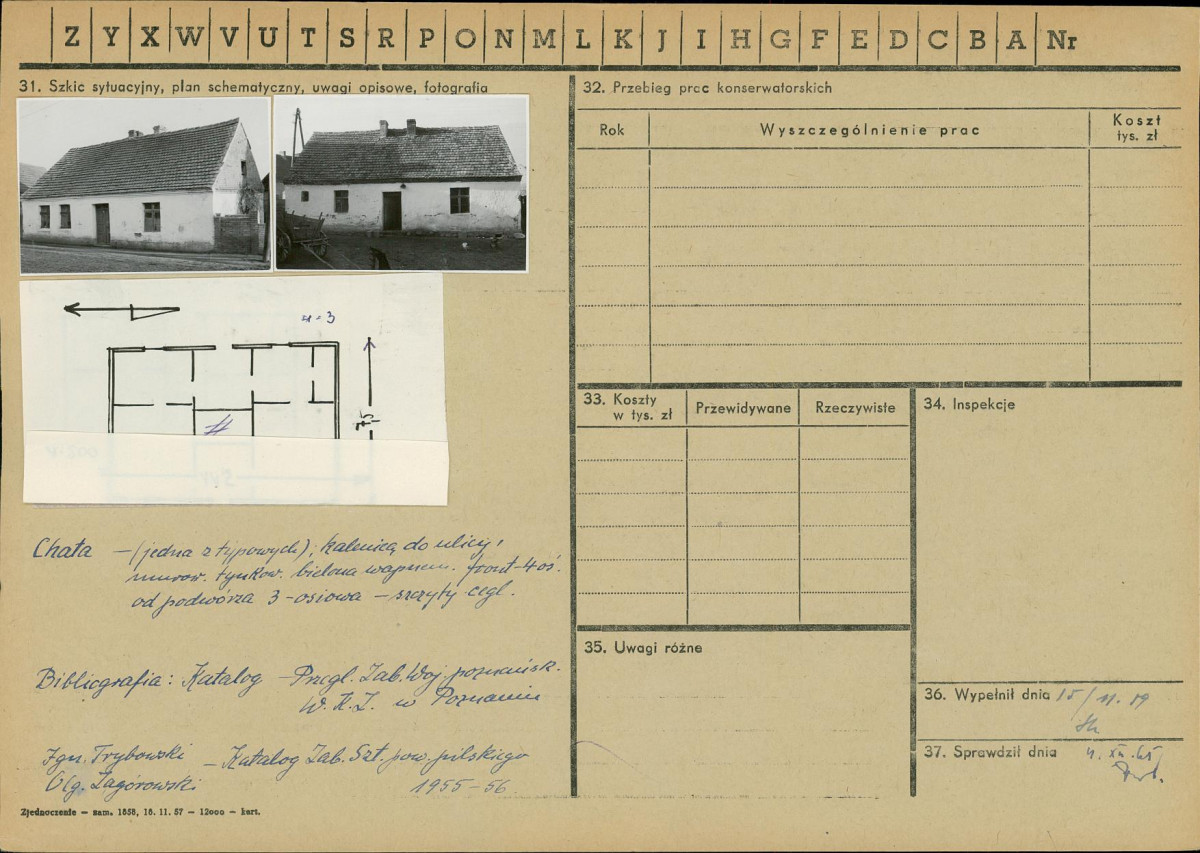 Z Y X W V U T S R P O N M L K J I H G F E D C B A Nr
31. Szkic sytuacyjny, plan schematyczny, uwagi opisowe, fotografia
7,5
Chata – (jedna z typowych); kalenicą do ulicy,
murow. tynkow. bielona wapnem. front - 4 oś.
od podwórza 3 - osiowa – szczyty cegl.
Bibliografia: Katalog – Przegl. Zab. Woj. poznańsk.
W. K. Z. w Poznaniu
Ign. Trybowski – Katalog Zab. Szt. pow. pilskiego
Olg. Zagórowski 1955-56
Zjednoczenie – zam. 1858, 16. 11. 57 – 12000 – kart.
32. Przebieg prac konserwatorskich
Rok Wyszczególnienie prac Koszt
tys. zł
33. Koszty
w tys. zł Przewidywane Rzeczywiste
34. Inspekcje
35. Uwagi różne
36. Wypełnił dnia 15/11. 59
37. Sprawdził dnia